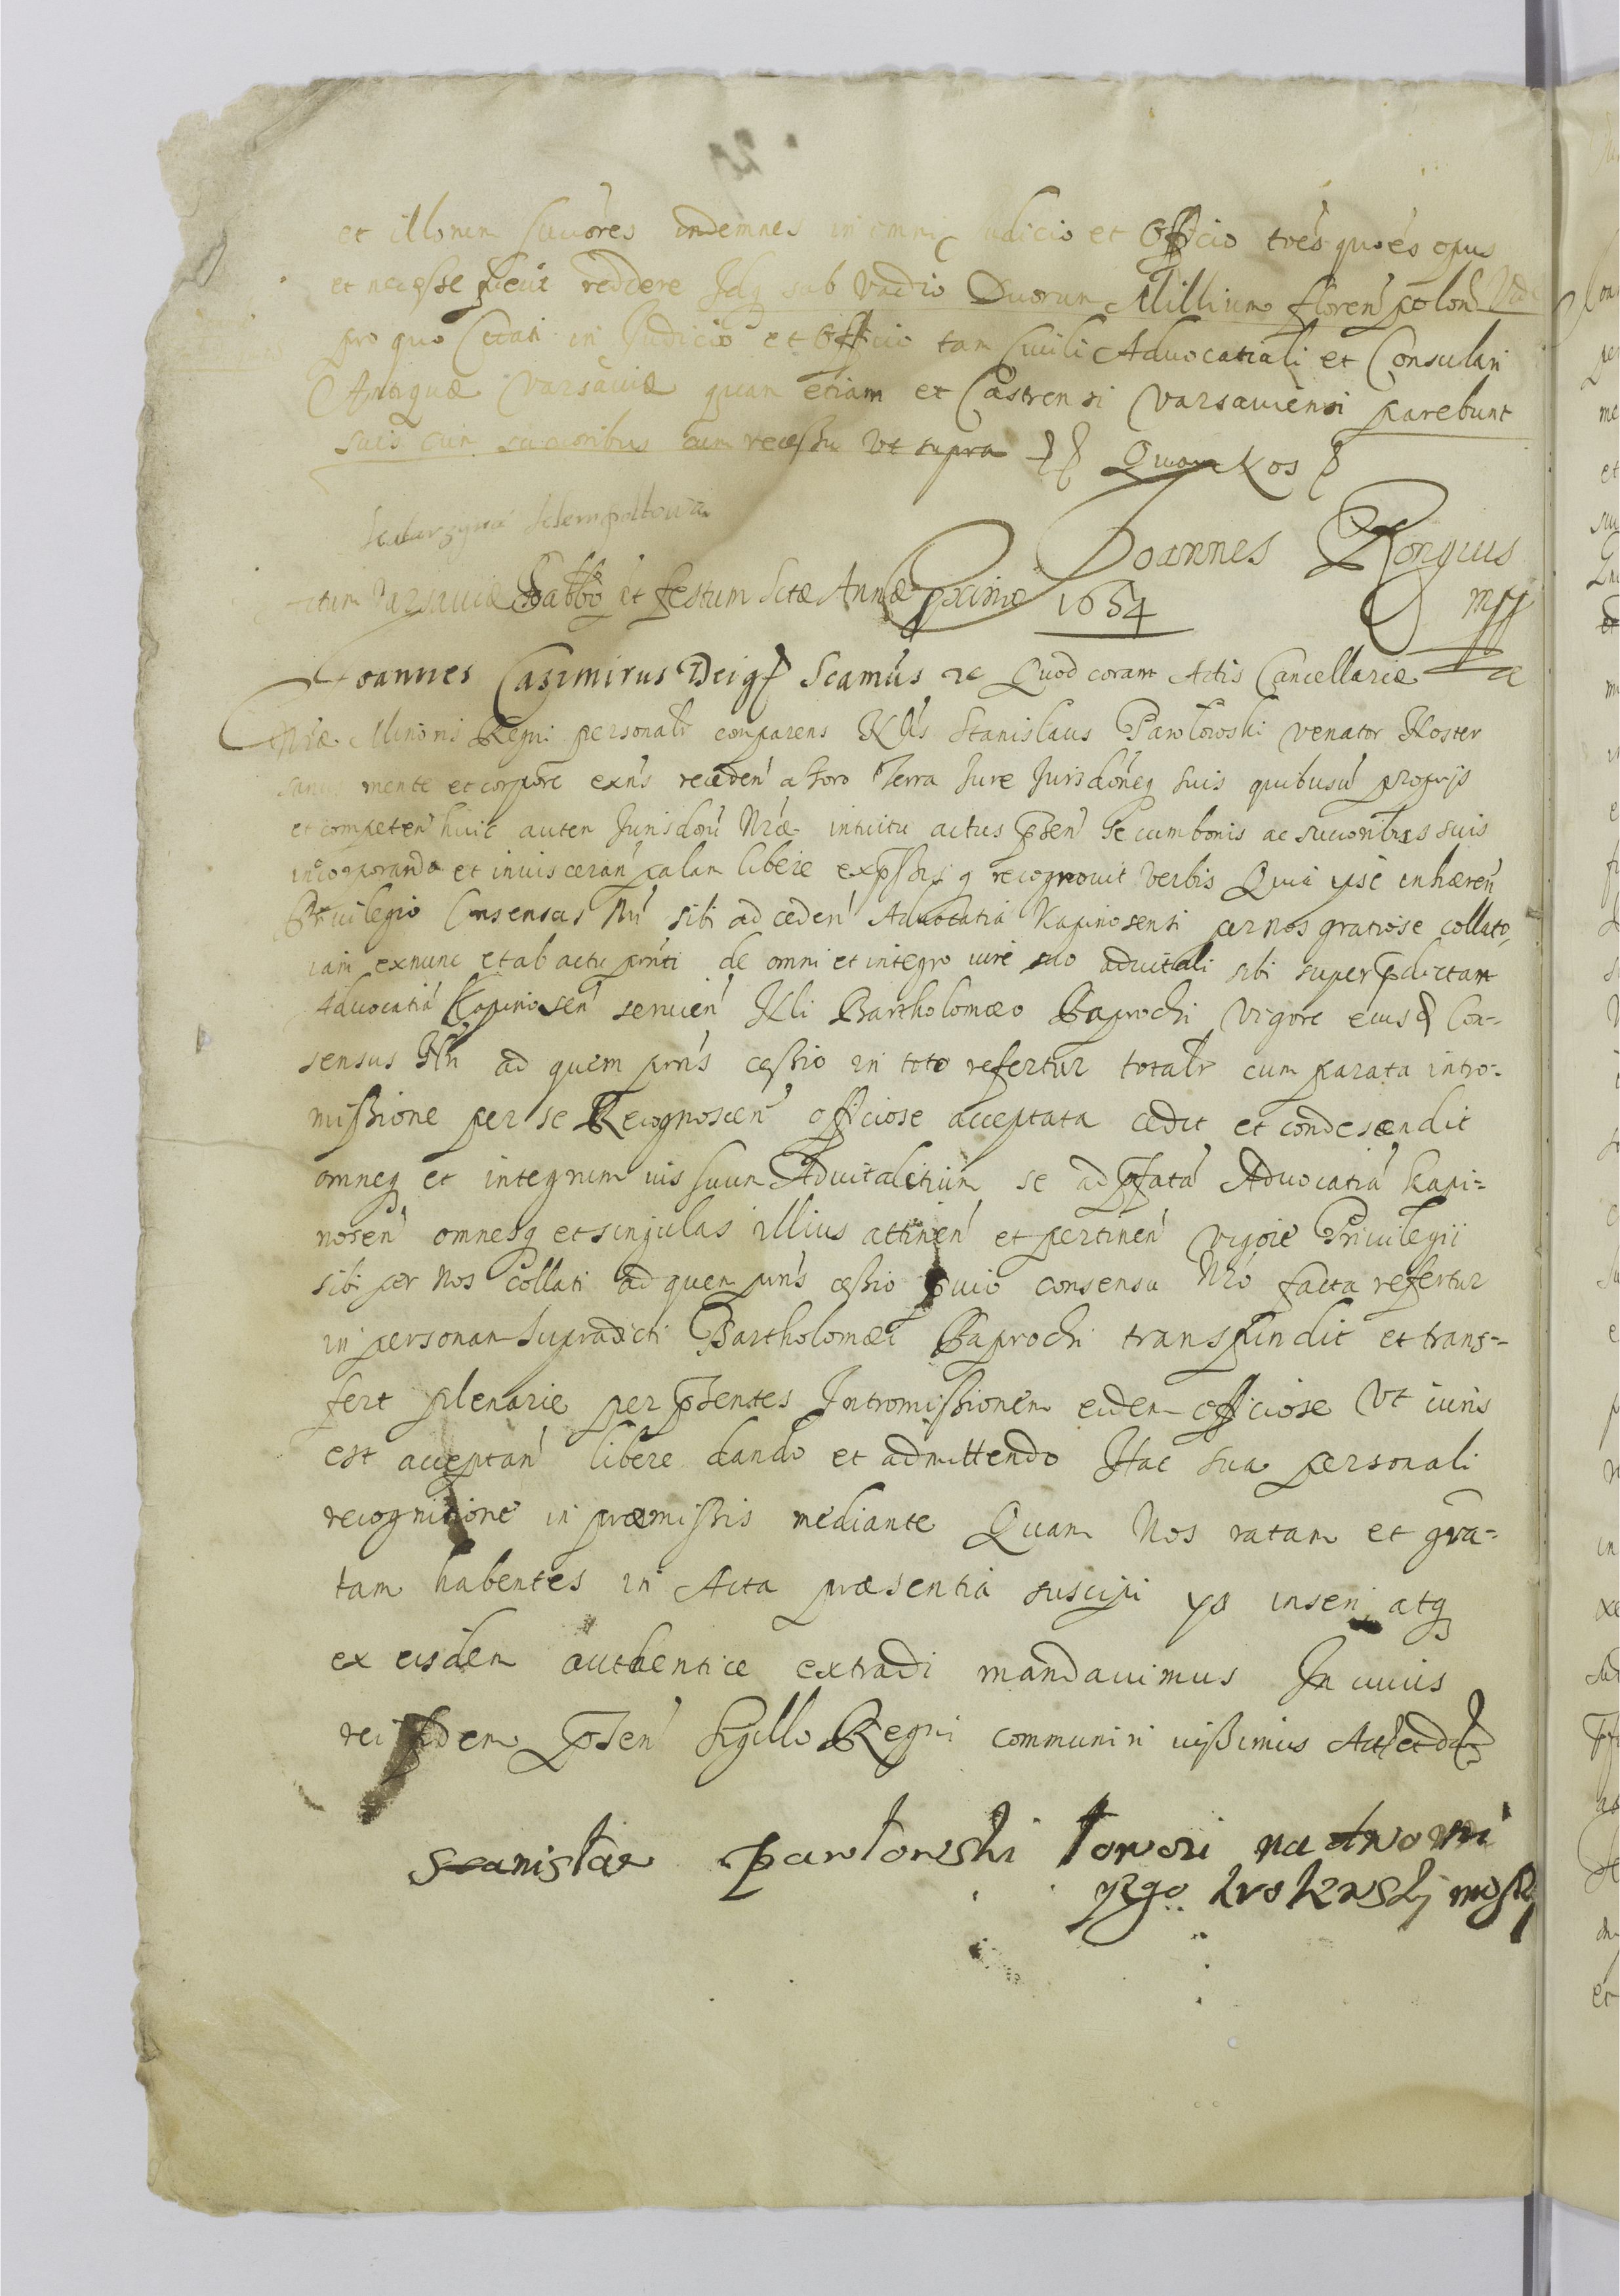 et illorum succores indemnes in omni Judicio et Officio tres quores opus
et necesse fuerit reddere Idq sub vadio Duorum Millium floren polon
pro quo Citati in Judicio et Officio tam Civili Advocatiali et Consulari
Antiquæ Varsaviæ quam etiam et Castrensi Varsaviensi parebunt
suis cum succoribus cum recessu Vt supra Quam Kos
Joannes
Actum Varsaviæ Sabbo Festum Sctæ Annæ Proximo 1654 mpp
Joannes Casimirus Dei g Scamus &c Quod coram Actis Cancellariæ
Nræ Minoris Regni personalr comparens Nlis Stanislaus Pawlowski venator Noster
sanus mente et corpore exns receden a foro Terra Jure Jurisdoneq suis quibusvi proprijs
et competen huic autem Jurisdoni Nræ intuitu actus psen se cum bonis ac succoribus suis
incorporando et inuisceran palam libere expssisq recognouit verbis Quia ipse inhæren
Priuilegio Consensus Nri sibi ad ceden Aduocatia Kapinosensi per nos gratiose collato,
iam exnunc et ab actu pnti de omni et integro iure suo aduitali sibi super pdictam
Aduocatia Kapinosen seruien Nli Bartholomæo Paprocki Vigore eius Con-
sensus Nri ad quem pns cessio in toto refertur totalr cum parata intro-
missione per se Recognoscen officiose acceptata cedit et condescendit
omneq et integrum ius suum Aduitalitium se ad pfata Aduocatia Kapi-
nosen omnesq et singulas illius attinen et pertinen vigore Priuilegii
sibi per Nos Collati ad quem pns cessio puio consensu Nro facta refertur
in personam Supradicti Bartholomæi Paprocki transfundit et trans-
fert plenarie per psentes Intromissionem eidem officiose Vt iuris
est acceptan libere dando et admittendo Hac sua personali
recognitione in præmissis mediante Quam Nos ratam et gra-
tam habentes in Acta præsentia suscipi ys inseri atq
ex eisdem authentice extradi mandauimus In cuius
rei fidem psen Sigillo Regni communiri iussimus Act et dat
Stanisław Pawłowski łowczi nadworni